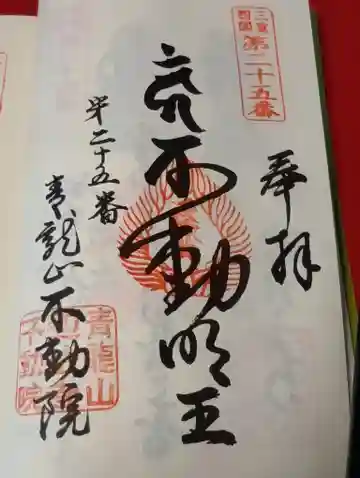 三重四国
第二十五番
奉拝
不動明王
第二十五番
青龍山不動院
青龍山不動院